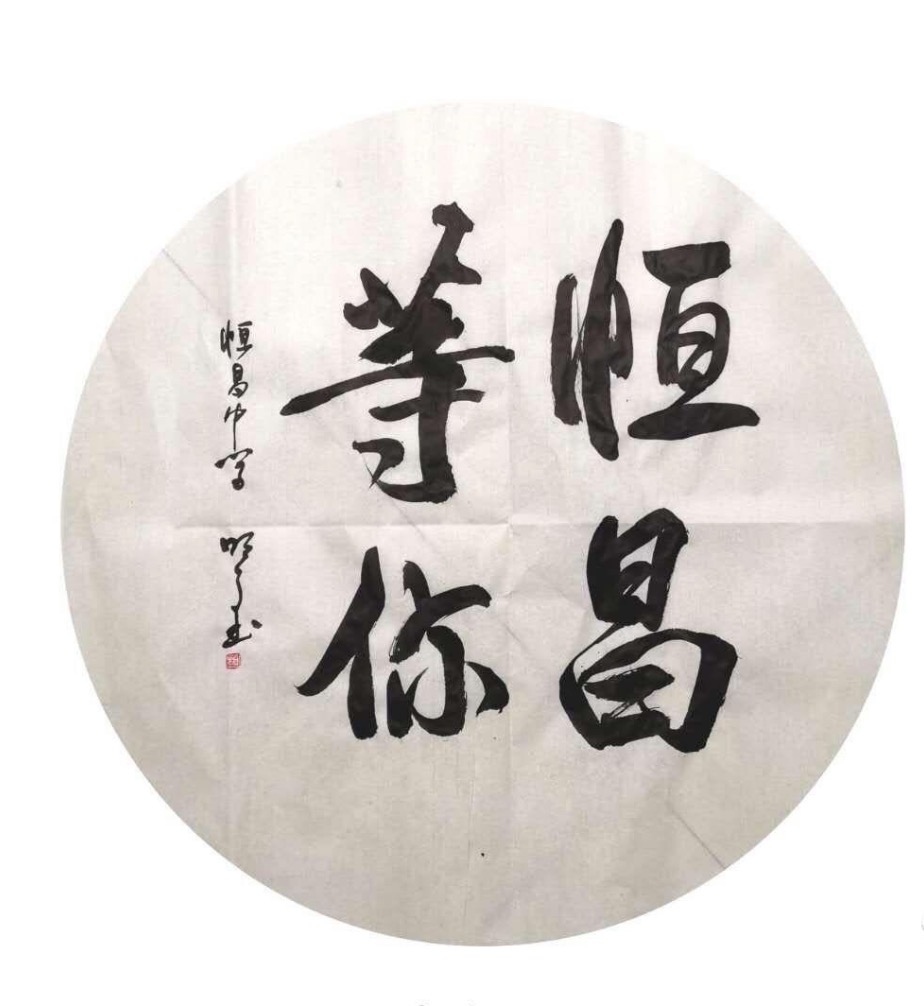 恒昌
等你
恒昌中学